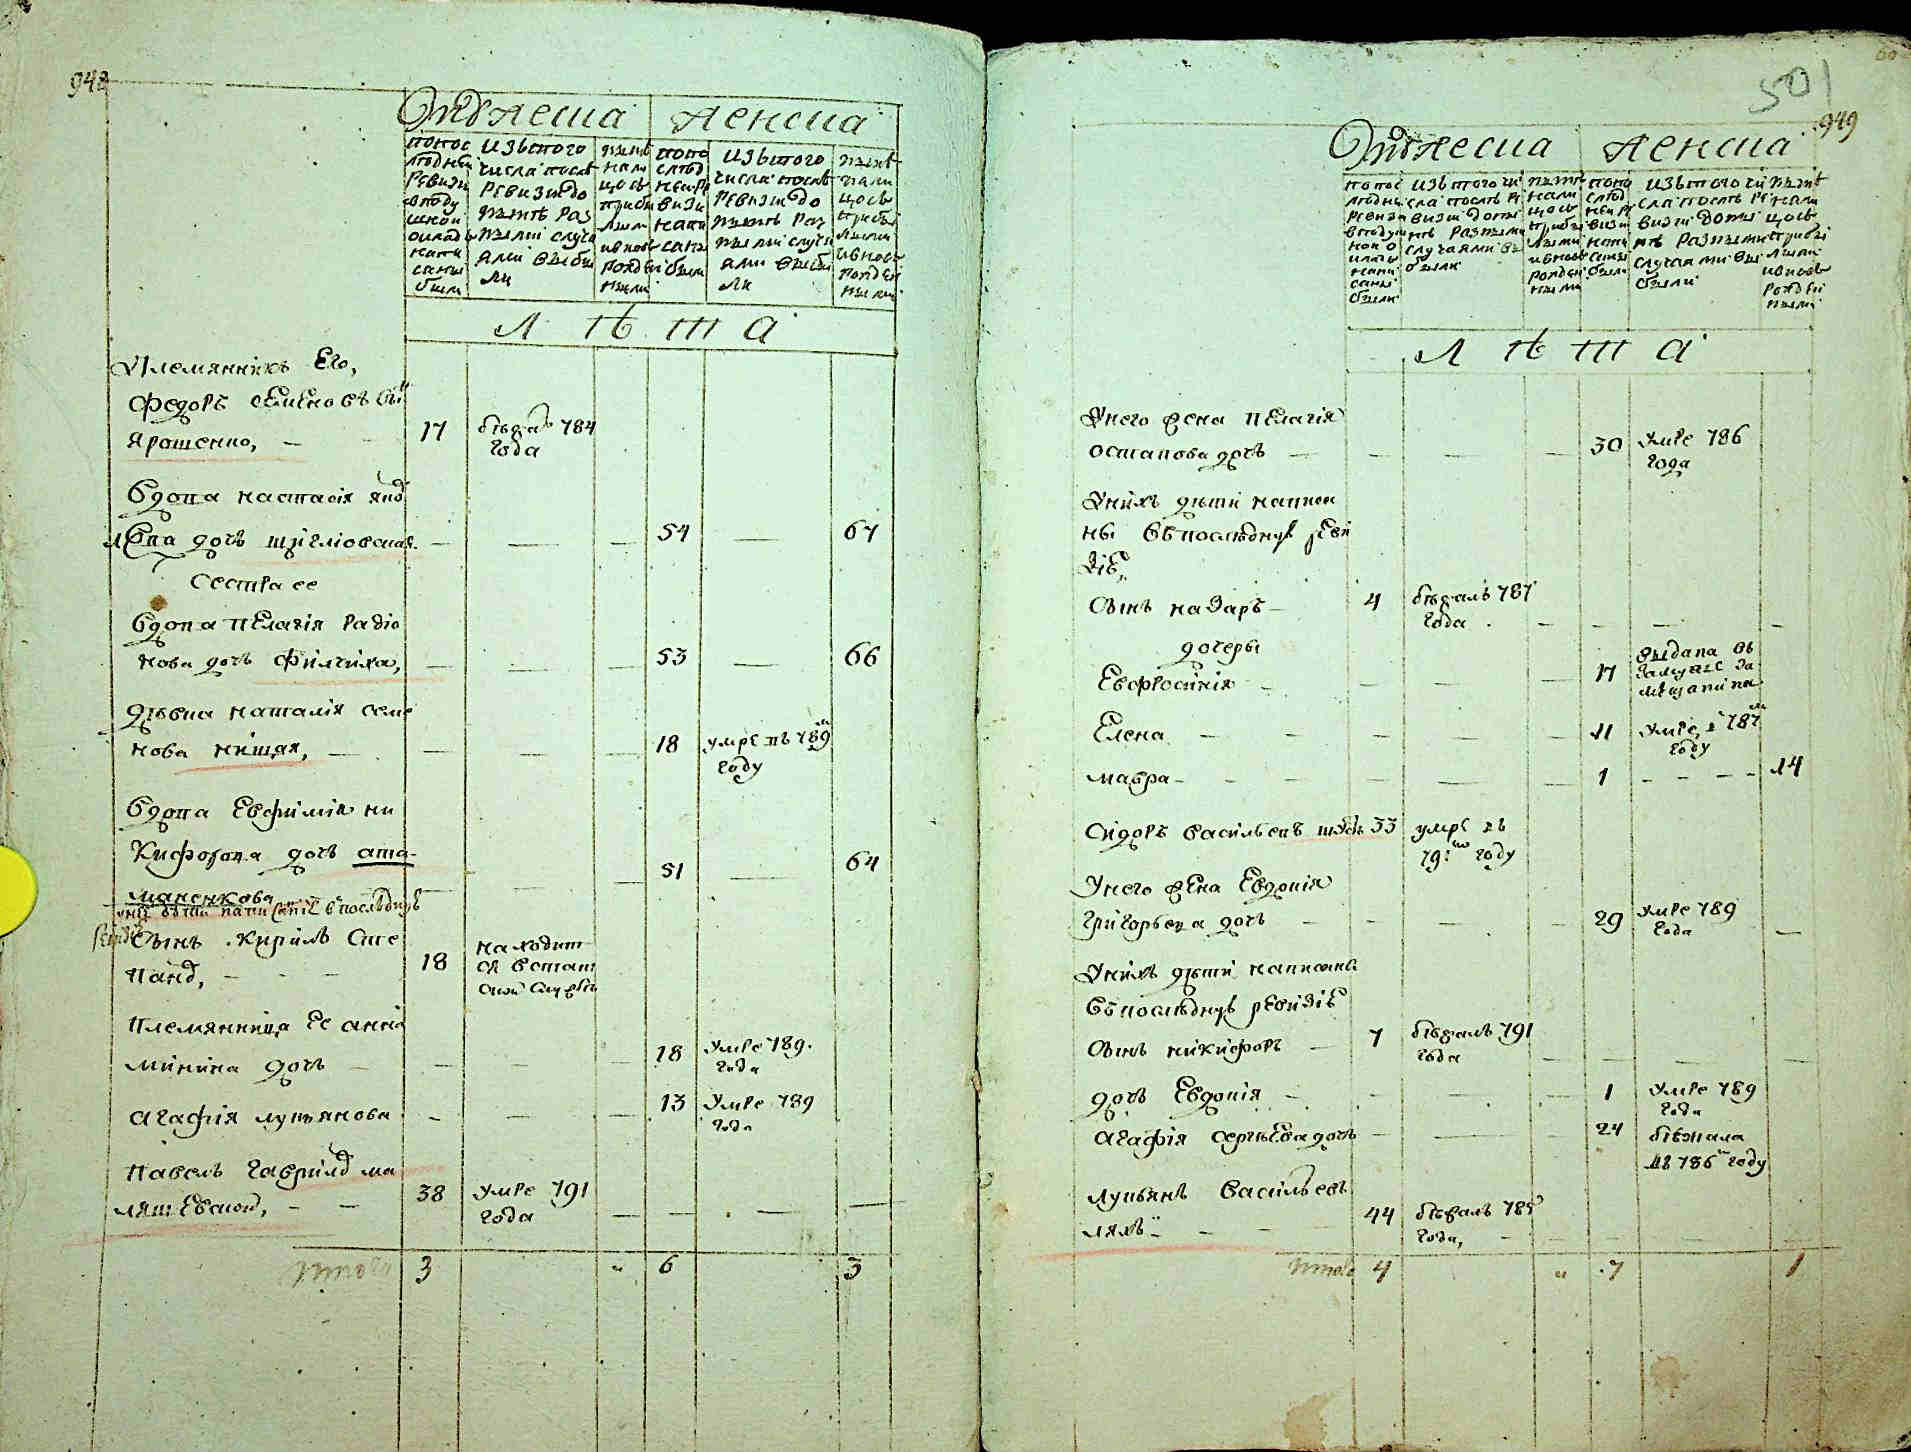 948
Мужеска Женска
по послѣдней ревизіи в подушной окладъ написаны были
изъ того числа послѣ ревизіи до нынѣ разными случаями выбыли
нынѣ на лицо съ прибылыми и вновь рожденными
по последней ревизіи написаны были
изъ того числа послѣ ревизіи до нынѣ разными случаями выбыли
нынѣ на лицо съ прибылыми и вновь рожденными
Л ѣ т а
Племянникъ Его,
Федоръ семеновъ сынъ
Ярошенко, 17 бѣжалъ 784
года
Вдова настасія яко
влева дочь 54 67
Сестра ее
Вдова пелагія радіо
нова дочь филчиха, 53 66
Дѣвка наталія семе
нова нищая, 18 умре въ 789м
году
Вдова Евфимія ни
кифорова дочь ата- 51 64
маненкова
у неї дѣти написанїе в послѣднуѣ
ревизїе
Сынъ кирилъ Сте
пановъ, 18 находит
ся в штат
ской службѣ
племянница Ее анна
минина дочь 18 умре 789.
года
агафія лукьянова 13 умре 789
года
павелъ гавриловъ ма
ляшевской, 38 умре 791
года
итого 3 " 6 3
501
949
Мужеска Женска
по послѣдней ревизіи в подушной окладъ написаны были
изъ того числа послѣ ревизіи до нынѣ разными случаями выбыли
нынѣ на лицо съ прибылыми и вновь рожденными
по последней ревизіи написаны были
изъ того числа послѣ ревизіи до нынѣ разными случаями выбыли
нынѣ на лицо съ прибылыми и вновь рожденными
Л ѣ т а
У него жена пелагія
остапова дочь 30 умре 786
года
У нихъ дѣти написа
ны въ послѣднуѣ реви
зіѣ,
Сынъ назаръ 4 бѣжалъ 787
года
дочеры
Евфросинія 17 выдана въ
замужье за
мѣщанина
Елена 11 умре, в 787м
году
мавра 1 14
Сидоръ васильевъ 33 умре въ
791мъ году
У него жена Евдокія
григорьева дочь 29 умре 789
года
У нихъ дѣти написаны
въ послѣднуѣ ревизіѣ
Сынъ никифоръ 7 бѣжалъ 791
года
дочь Евдокія 1 умре 789
года
агафія сергѣева дочь 24 бѣжала
въ 786м году
лукьянъ васильевъ
ляхъ 44 бѣжалъ 789
года,
итого 4 " 7 1